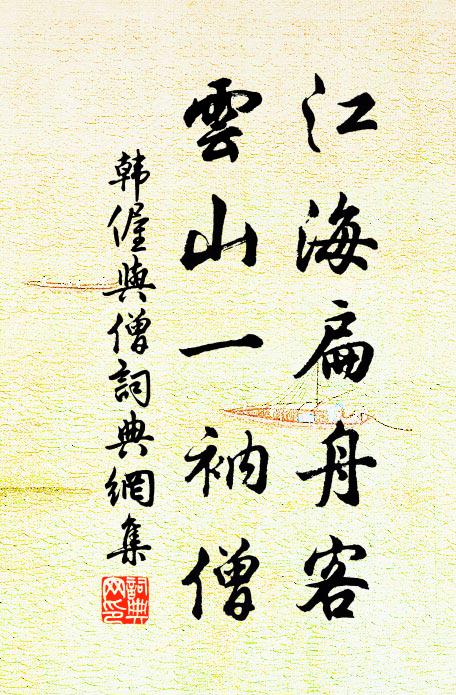 江海扁舟客
雲山一衲僧
韩偓與僧詞典網集
詞典网印